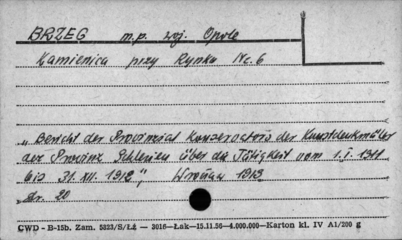 BRZEG m.p. woj. Opole
Kamienica przy Rynku Nr. 6
„Bericht der Provinzial Konservators der Kunstdenkmäler
der Provinz Schlesien über die Tätigkeit vom 1.I. 1911
bis 31. XII. 1912", Wrocław 1913
str. 20
CWD - B-15b. Zam. 5823/S/Łź — 3016—Łak—15.11.56—4.000.000—Karton kl. IV A1/200 g